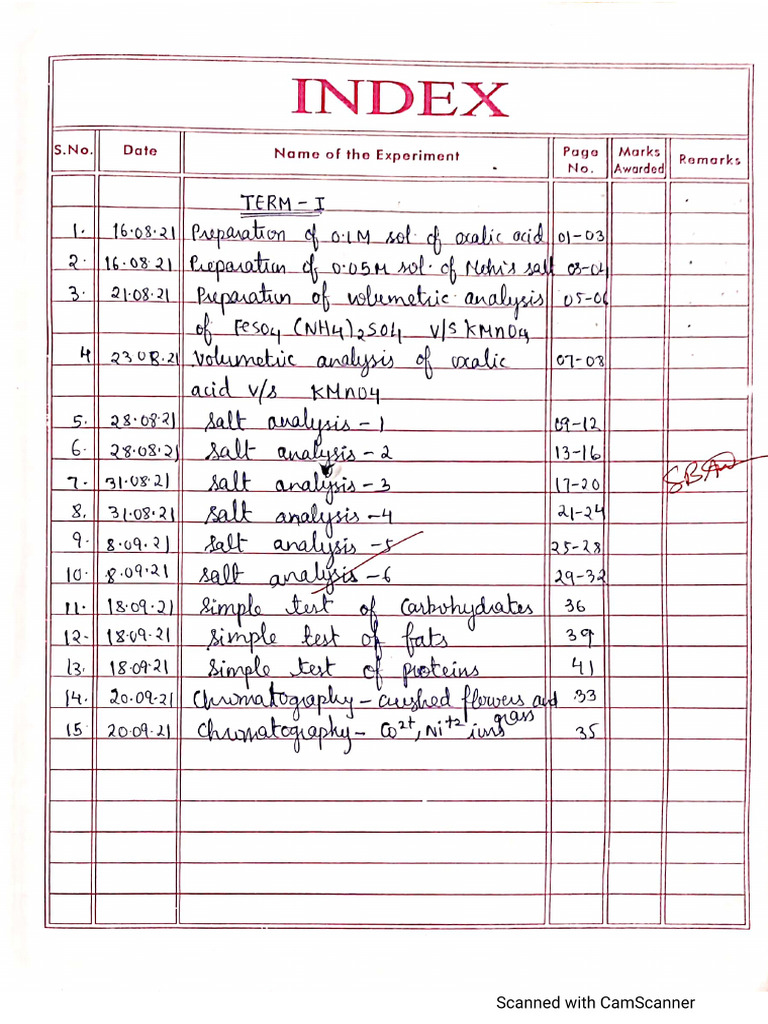 INDEX
S.No. Date Name of the Experiment Page No. Marks Awarded Remarks
TERM - I
1. 16.08.21 Preparation of 0.1M sol. of oxalic acid 01-03
2. 16.08.21 Preparation of 0.05M sol. of Mohr's salt 03-04
3. 21.08.21 Preparation of volumetric analysis 05-06
of FeSO4 (NH4)2SO4 v/s KMnO4
4 23.08.21 Volumetric analysis of oxalic 07-08
acid v/s KMnO4
5. 28.08.21 Salt analysis - 1 09-12
6. 28.08.21 Salt analysis - 2 13-16
7. 31.08.21 Salt analysis - 3 17-20
8. 31.08.21 Salt analysis - 4 21-24
9. 8.09.21 Salt analysis - 5 25-28
10. 8.09.21 Salt analysis - 6 29-32
11. 18.09.21 Simple test of Carbohydrates 36
12. 18.09.21 Simple test of fats 39
13. 18.09.21 Simple test of proteins 41
14. 20.09.21 Chromatography - crushed flowers and 33
grass
15. 20.09.21 Chromatography - Co2+, Ni+2 ions 35
Scanned with CamScanner